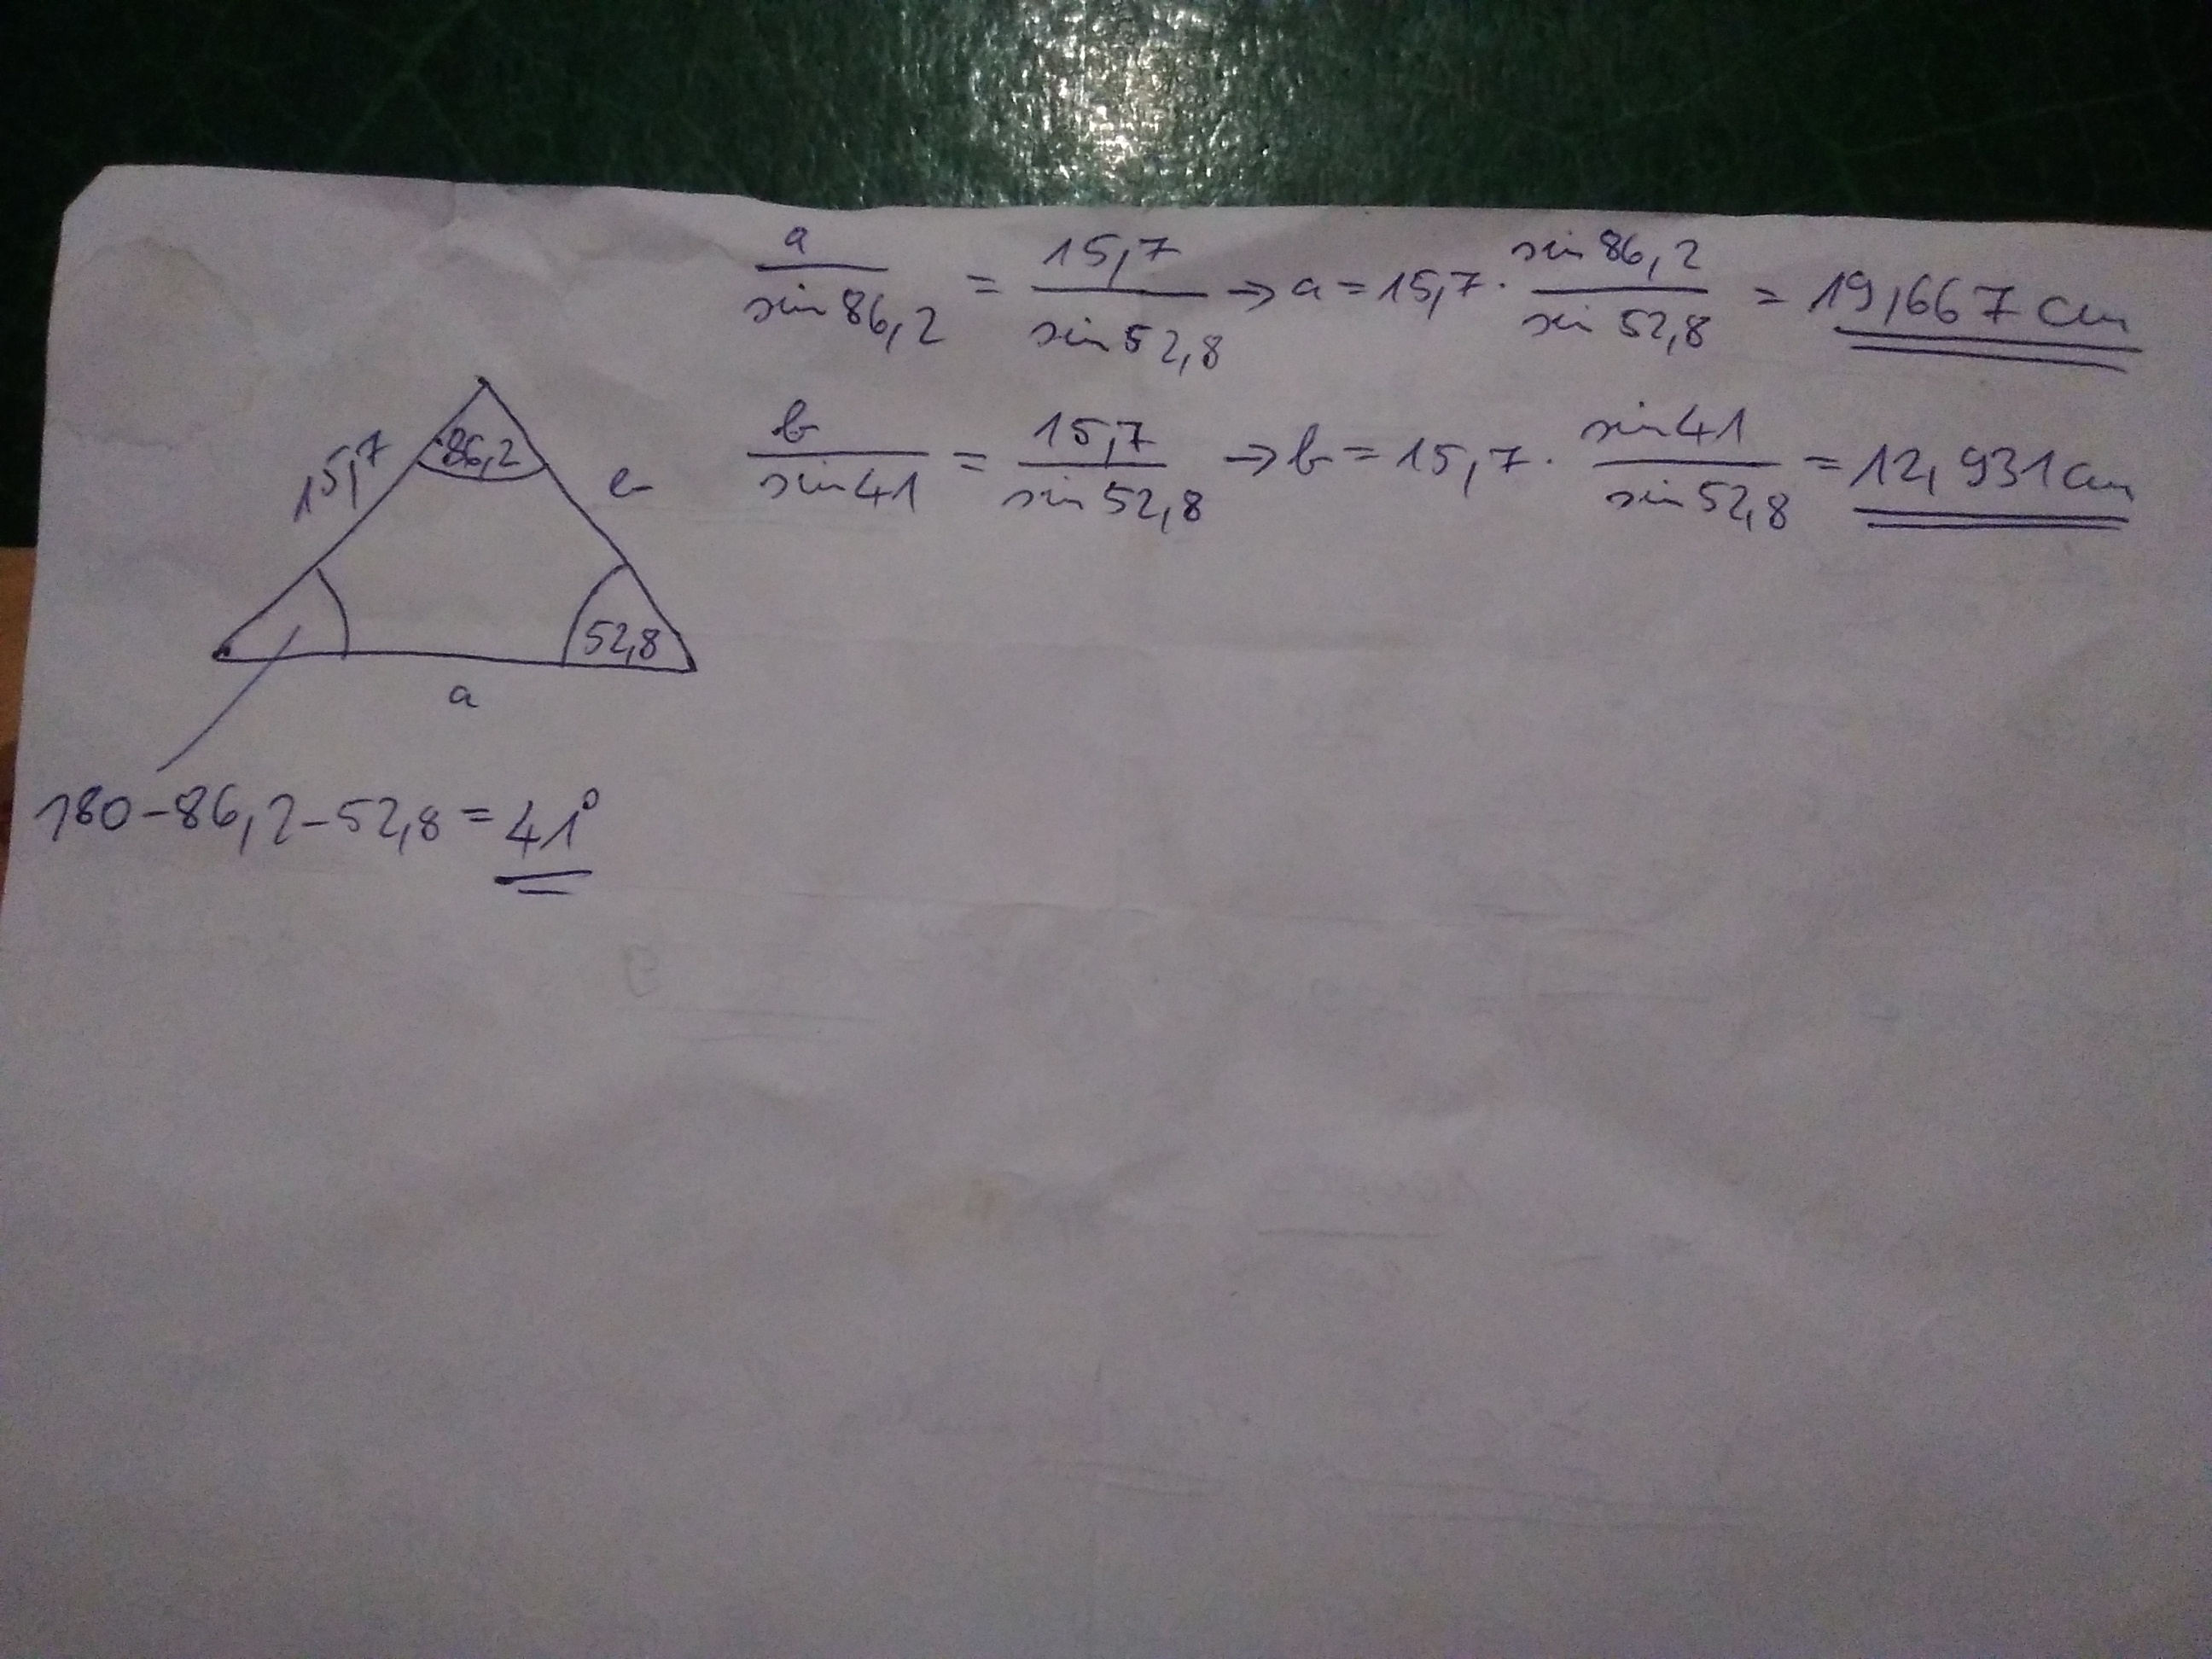 a/sin 86,2 = 15,7/sin 52,8 → a = 15,7 · sin 86,2/sin 52,8 = 19,667 cm
b/sin 41 = 15,7/sin 52,8 → b = 15,7 · sin 41/sin 52,8 = 12,931 cm
86,2
15,7
b
52,8
a
180 - 86,2 - 52,8 = 41°